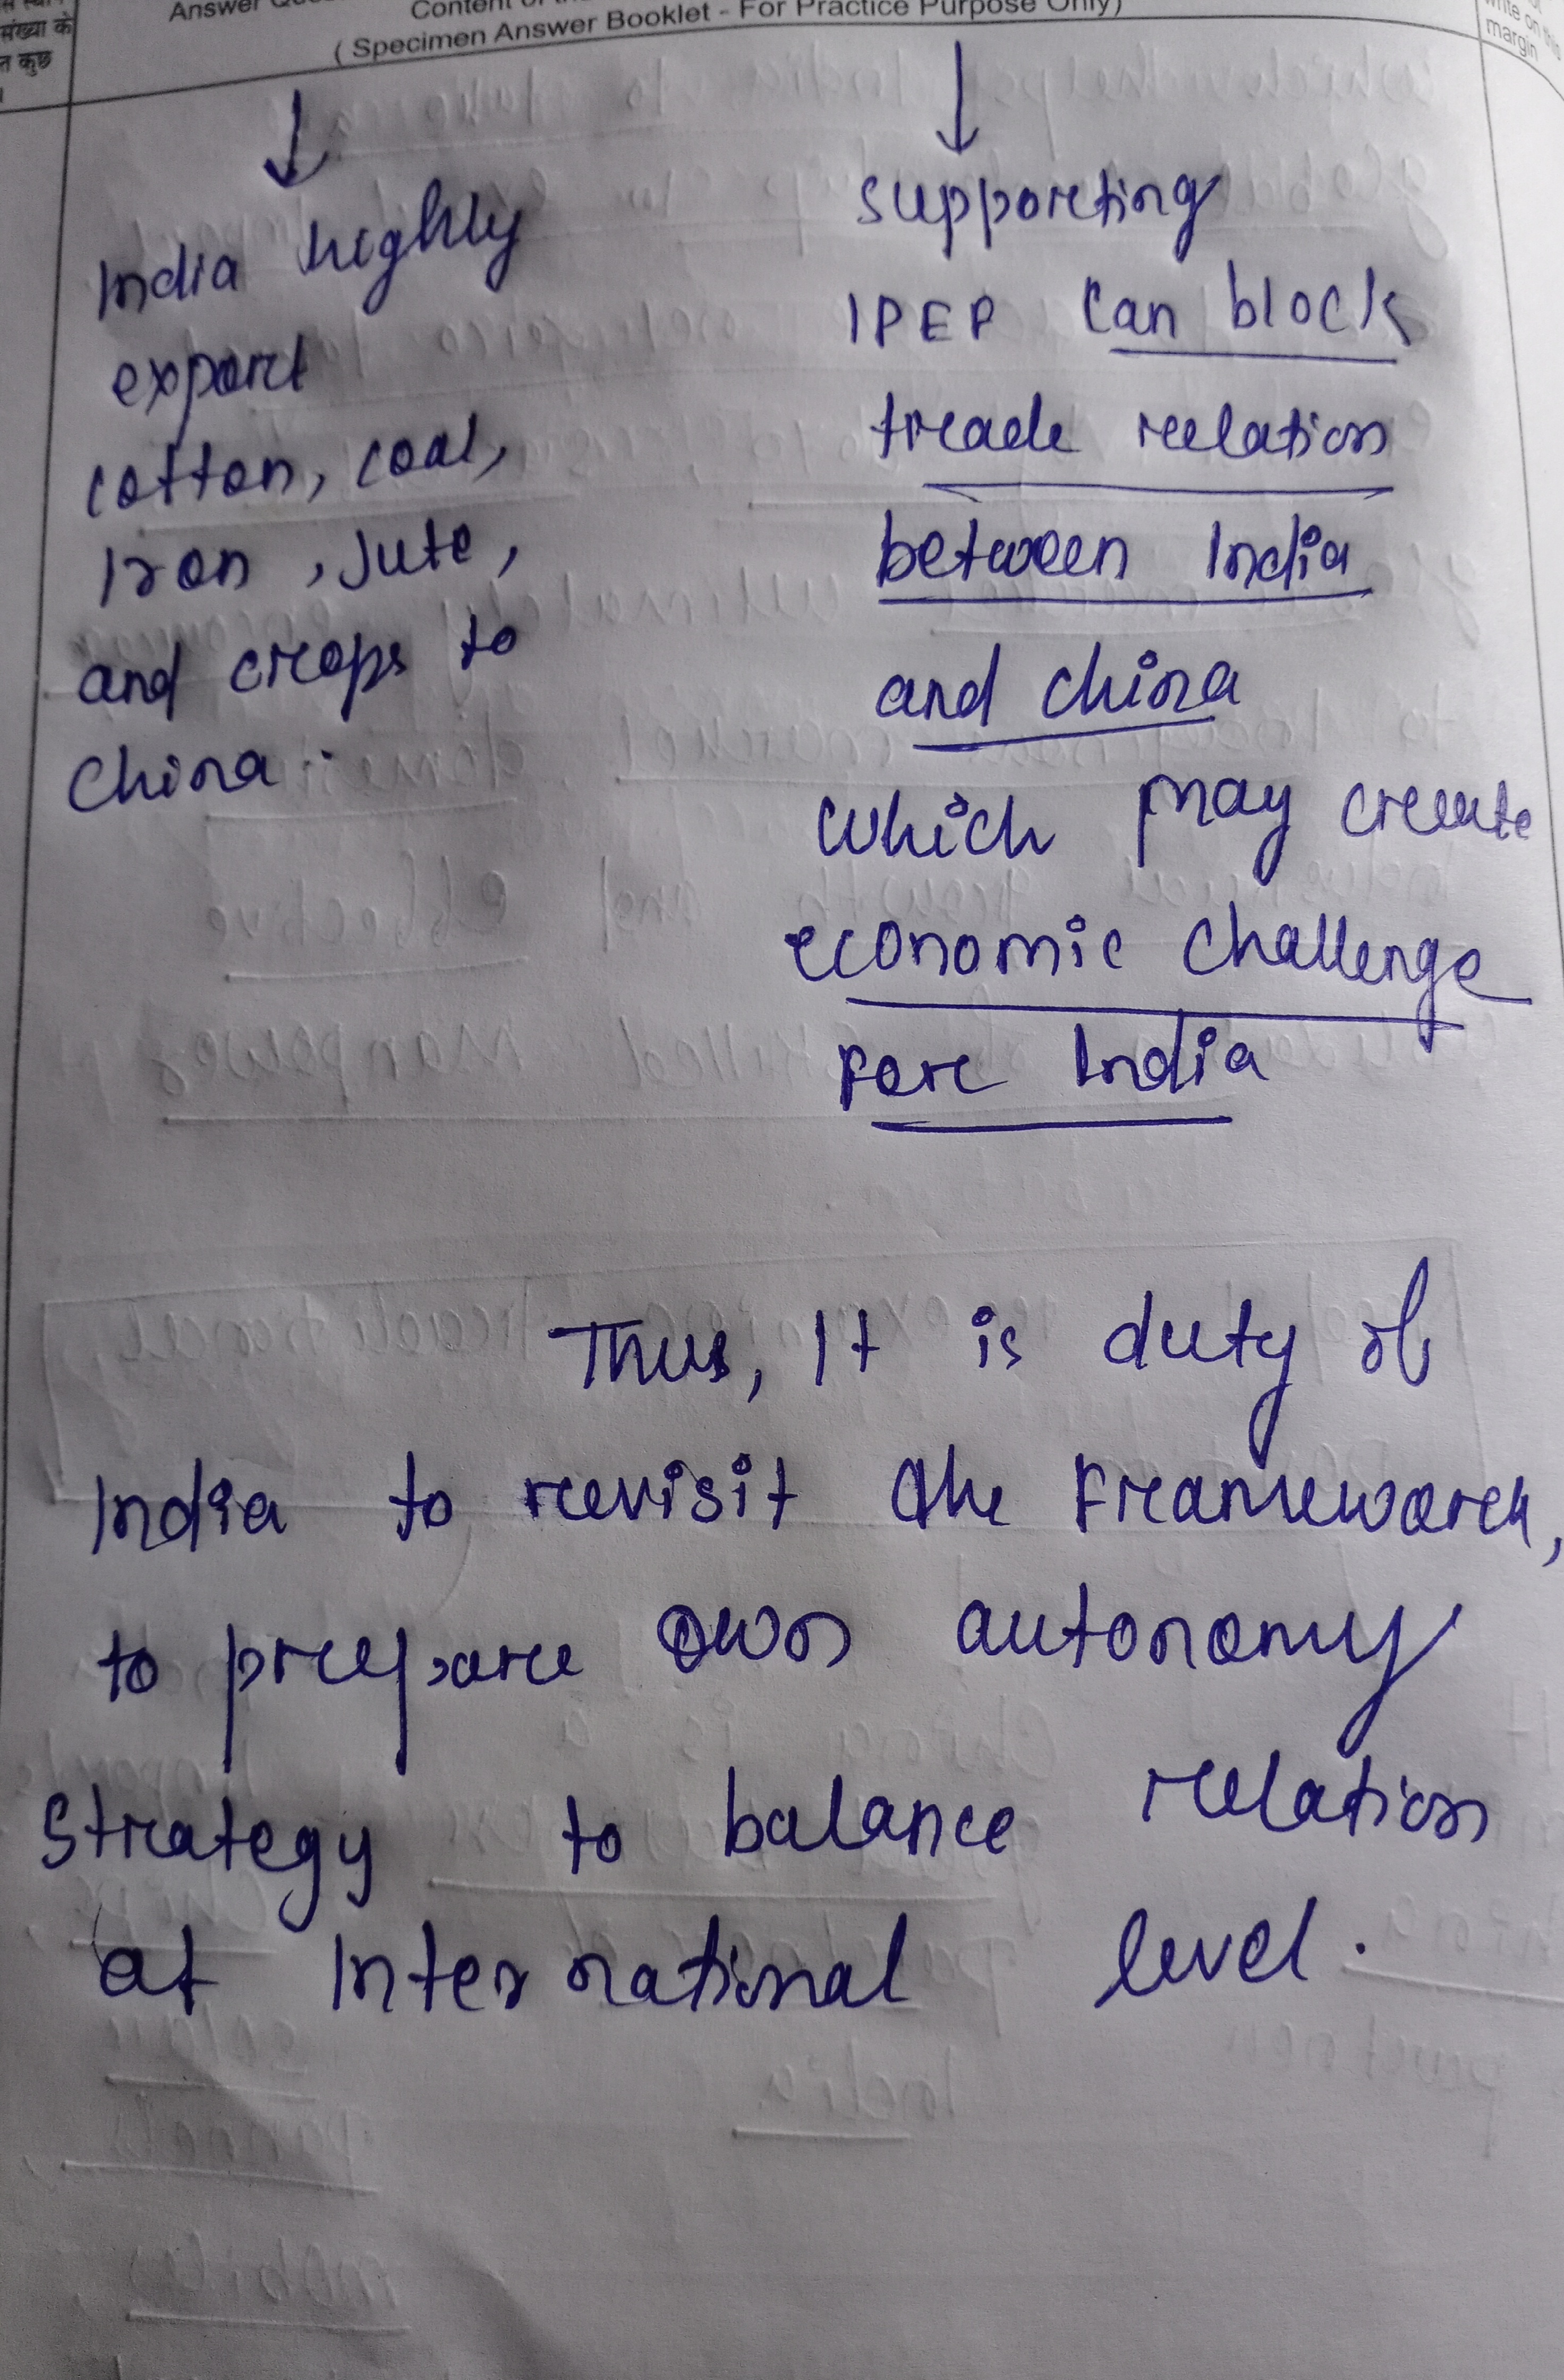 संख्या के
कुछ
Answer
Content of
( Specimen Answer Booklet - For Practice Purpose Only)
write on this
margin
India highly
export
cotton, coal,
Iron, Jute,
and crops to
China.
supporting
IPEP can block
trade relation
between India
and china
which may create
economic challenge
For India
Thus, It is duty of
India to revisit the Framework,
to prepare own autonomy
strategy to balance relation
at International level.